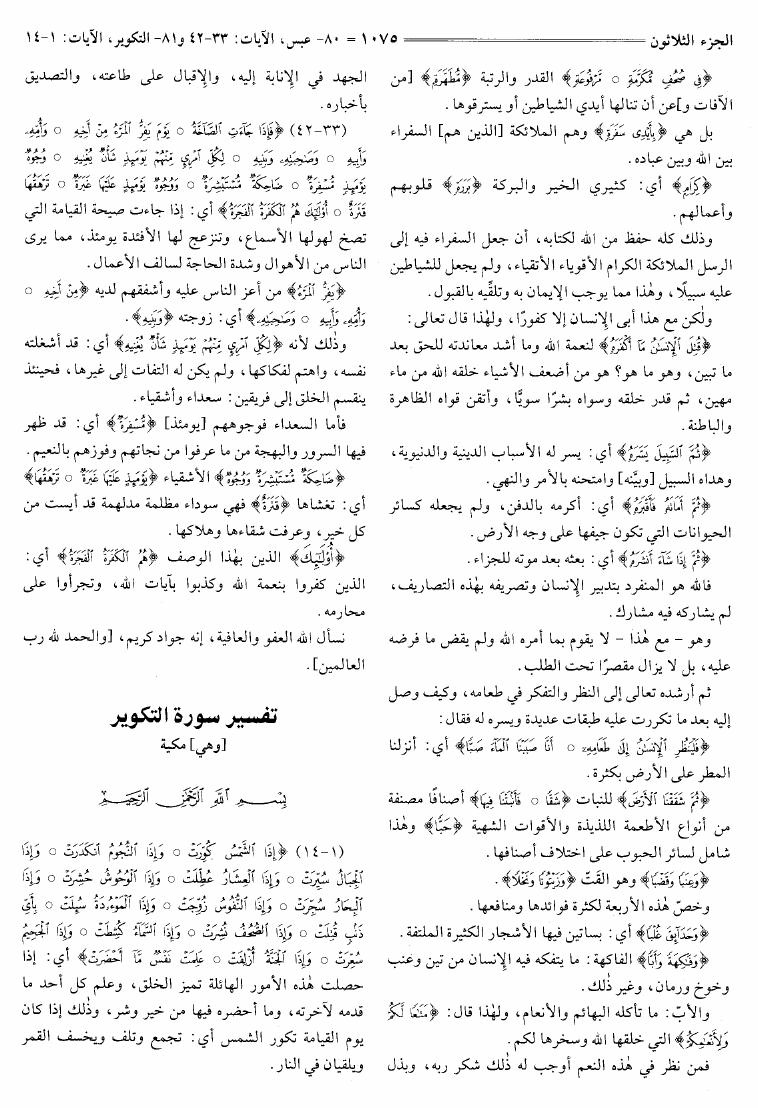 الجزء الثلاثون ١٠٧٥ = ٨٠- عبس، الآيات: ٣٣-٤٢ و٨١- التكوير، الآيات: ١-١٤
﴿فِي صُحُفٍ مُّكَرَّمَةٍ ○ مَّرْفُوعَةٍ﴾ القدر والرتبة ﴿مُّطَهَّرَةٍ﴾ [من
الآفات و]عن أن تنالها أيدي الشياطين أو يسترقوها.
بل هي ﴿بِأَيْدِي سَفَرَةٍ﴾ وهم الملائكة [الذين هم] السفراء
بين الله وبين عباده.
﴿كِرَامٍ﴾ أي: كثيري الخير والبركة ﴿بَرَرَةٍ﴾ قلوبهم
وأعمالهم.
وذلك كله حفظ من الله لكتابه، أن جعل السفراء فيه إلى
الرسل الملائكة الكرام الأقوياء الأتقياء، ولم يجعل للشياطين
عليه سبيلًا، وهٰذا مما يوجب الإيمان به وتلقِّيه بالقبول.
ولٰكن مع هذا أبى الإنسان إلا كفورًا، ولهٰذا قال تعالى:
﴿قُتِلَ الْإِنسَانُ مَا أَكْفَرَهُ﴾ لنعمة الله وما أشد معاندته للحق بعد
ما تبين، وهو ما هو؟ هو من أضعف الأشياء خلقه الله من ماء
مهين، ثم قدر خلقه وسواه بشرًا سويًّا، وأتقن قواه الظاهرة
والباطنة.
﴿ثُمَّ السَّبِيلَ يَسَّرَهُ﴾ أي: يسر له الأسباب الدينية والدنيوية،
وهداه السبيل [وبيَّنه] وامتحنه بالأمر والنهي.
﴿ثُمَّ أَمَاتَهُ فَأَقْبَرَهُ﴾ أي: أكرمه بالدفن، ولم يجعله كسائر
الحيوانات التي تكون جيفها على وجه الأرض.
﴿ثُمَّ إِذَا شَاءَ أَنشَرَهُ﴾ أي: بعثه بعد موته للجزاء.
فالله هو المنفرد بتدبير الإنسان وتصريفه بهٰذه التصاريف،
لم يشاركه فيه مشارك.
وهو - مع هٰذا - لا يقوم بما أمره الله ولم يقض ما فرضه
عليه، بل لا يزال مقصرًا تحت الطلب.
ثم أرشده تعالى إلى النظر والتفكر في طعامه، وكيف وصل
إليه بعد ما تكررت عليه طبقات عديدة ويسره له فقال:
﴿فَلْيَنظُرِ الْإِنسَانُ إِلَىٰ طَعَامِهِ ○ أَنَّا صَبَبْنَا الْمَاءَ صَبًّا﴾ أي: أنزلنا
المطر على الأرض بكثرة.
﴿ثُمَّ شَقَقْنَا الْأَرْضَ﴾ للنبات ﴿شَقًّا ○ فَأَنبَتْنَا فِيهَا﴾ أصنافًا مصنفة
من أنواع الأطعمة اللذيذة والأقوات الشهية ﴿حَبًّا﴾ وهٰذا
شامل لسائر الحبوب على اختلاف أصنافها.
﴿وَعِنَبًا وَقَضْبًا﴾ وهو القتّ ﴿وَزَيْتُونًا وَنَخْلًا﴾.
وخصّ هٰذه الأربعة لكثرة فوائدها ومنافعها.
﴿وَحَدَائِقَ غُلْبًا﴾ أي: بساتين فيها الأشجار الكثيرة الملتفة.
﴿وَفَاكِهَةً وَأَبًّا﴾ الفاكهة: ما يتفكه فيه الإنسان من تين وعنب
وخوخ ورمان، وغير ذٰلك.
والأبّ: ما تأكله البهائم والأنعام، ولهٰذا قال: ﴿مَتَاعًا لَّكُمْ
وَلِأَنْعَامِكُمْ﴾ التي خلقها الله وسخرها لكم.
فمن نظر في هٰذه النعم أوجب له ذٰلك شكر ربه، وبذل
الجهد في الإنابة إليه، والإقبال على طاعته، والتصديق
بأخباره.
(٣٣-٤٢) ﴿فَإِذَا جَاءَتِ الصَّاخَّةُ ○ يَوْمَ يَفِرُّ الْمَرْءُ مِنْ أَخِيهِ ○ وَأُمِّهِ
وَأَبِيهِ ○ وَصَاحِبَتِهِ وَبَنِيهِ ○ لِكُلِّ امْرِئٍ مِّنْهُمْ يَوْمَئِذٍ شَأْنٌ يُغْنِيهِ ○ وُجُوهٌ
يَوْمَئِذٍ مُّسْفِرَةٌ ○ ضَاحِكَةٌ مُّسْتَبْشِرَةٌ ○ وَوُجُوهٌ يَوْمَئِذٍ عَلَيْهَا غَبَرَةٌ ○ تَرْهَقُهَا
قَتَرَةٌ ○ أُولَٰئِكَ هُمُ الْكَفَرَةُ الْفَجَرَةُ﴾ أي: إذا جاءت صيحة القيامة التي
تصخ لهولها الأسماع، وتنزعج لها الأفئدة يومئذ، مما يرى
الناس من الأهوال وشدة الحاجة لسالف الأعمال.
﴿يَفِرُّ الْمَرْءُ﴾ من أعز الناس عليه وأشفقهم لديه ﴿مِنْ أَخِيهِ ○
وَأُمِّهِ وَأَبِيهِ ○ وَصَاحِبَتِهِ﴾ أي: زوجته ﴿وَبَنِيهِ﴾.
وذٰلك لأنه ﴿لِكُلِّ امْرِئٍ مِّنْهُمْ يَوْمَئِذٍ شَأْنٌ يُغْنِيهِ﴾ أي: قد أشغلته
نفسه، واهتم لفكاكها، ولم يكن له التفات إلى غيرها، فحينئذ
ينقسم الخلق إلى فريقين: سعداء وأشقياء.
فأما السعداء فوجوههم [يومئذ] ﴿مُّسْفِرَةٌ﴾ أي: قد ظهر
فيها السرور والبهجة من ما عرفوا من نجاتهم وفوزهم بالنعيم.
﴿ضَاحِكَةٌ مُّسْتَبْشِرَةٌ وَوُجُوهٌ﴾ الأشقياء ﴿يَوْمَئِذٍ عَلَيْهَا غَبَرَةٌ ○ تَرْهَقُهَا﴾
أي: تغشاها ﴿قَتَرَةٌ﴾ فهي سوداء مظلمة مدلهمة قد أيست من
كل خير، وعرفت شقاءها وهلاكها.
﴿أُولَٰئِكَ﴾ الذين بهٰذا الوصف ﴿هُمُ الْكَفَرَةُ الْفَجَرَةُ﴾ أي:
الذين كفروا بنعمة الله وكذبوا بآيات الله، وتجرأوا على
محارمه.
نسأل الله العفو والعافية، إنه جواد كريم، [والحمد لله رب
العالمين].
تفسير سورة التكوير
[وهي] مكية
بِسْمِ اللَّهِ الرَّحْمَٰنِ الرَّحِيمِ
(١-١٤) ﴿إِذَا الشَّمْسُ كُوِّرَتْ ○ وَإِذَا النُّجُومُ انكَدَرَتْ ○ وَإِذَا
الْجِبَالُ سُيِّرَتْ ○ وَإِذَا الْعِشَارُ عُطِّلَتْ ○ وَإِذَا الْوُحُوشُ حُشِرَتْ ○ وَإِذَا
الْبِحَارُ سُجِّرَتْ ○ وَإِذَا النُّفُوسُ زُوِّجَتْ ○ وَإِذَا الْمَوْءُودَةُ سُئِلَتْ ○ بِأَيِّ
ذَنبٍ قُتِلَتْ ○ وَإِذَا الصُّحُفُ نُشِرَتْ ○ وَإِذَا السَّمَاءُ كُشِطَتْ ○ وَإِذَا الْجَحِيمُ
سُعِّرَتْ ○ وَإِذَا الْجَنَّةُ أُزْلِفَتْ ○ عَلِمَتْ نَفْسٌ مَّا أَحْضَرَتْ﴾ أي: إذا
حصلت هٰذه الأمور الهائلة تميز الخلق، وعلم كل أحد ما
قدمه لآخرته، وما أحضره فيها من خير وشر، وذٰلك إذا كان
يوم القيامة تكور الشمس أي: تجمع وتلف ويخسف القمر
ويلقيان في النار.